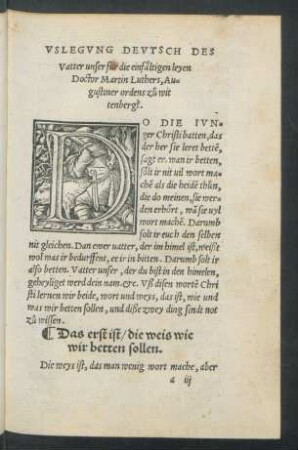 VSLEGVNG DEVTSCH DES
Vatter unser für die einfältigen leyen
Doctor Martin Luthers, Au-
gustiner ordens zů wit
tenbergk.
DO DIE IVN-
ger Christi batten, das
der her sie leret bettē,
sagt er. wan ir betten,
sölt ir nit uil wort ma
chē als die heidē thůn,
die do meinen, sie wer-
den erhört, wā sie uyl
wort machē. Darumb
solt ir euch den selben
nit gleichen. Dan ewer uatter, der im himel ist, weißt
wol was ir bedurffent, ee ir in bitten. Darumb solt ir
also betten. Vatter unser, der du bist in den himelen,
geheyliget werd dein nam. &c. Vß disen wortē Chri
sti lernen wir beide, wort und weys, das ist, wie und
was wir betten sollen, und diße zwey ding sindt not
zů wissen.
¶ Das erst ist / die weis wie
wir betten sollen.
Die weys ist, das man wenig wort mache, aber
a iij